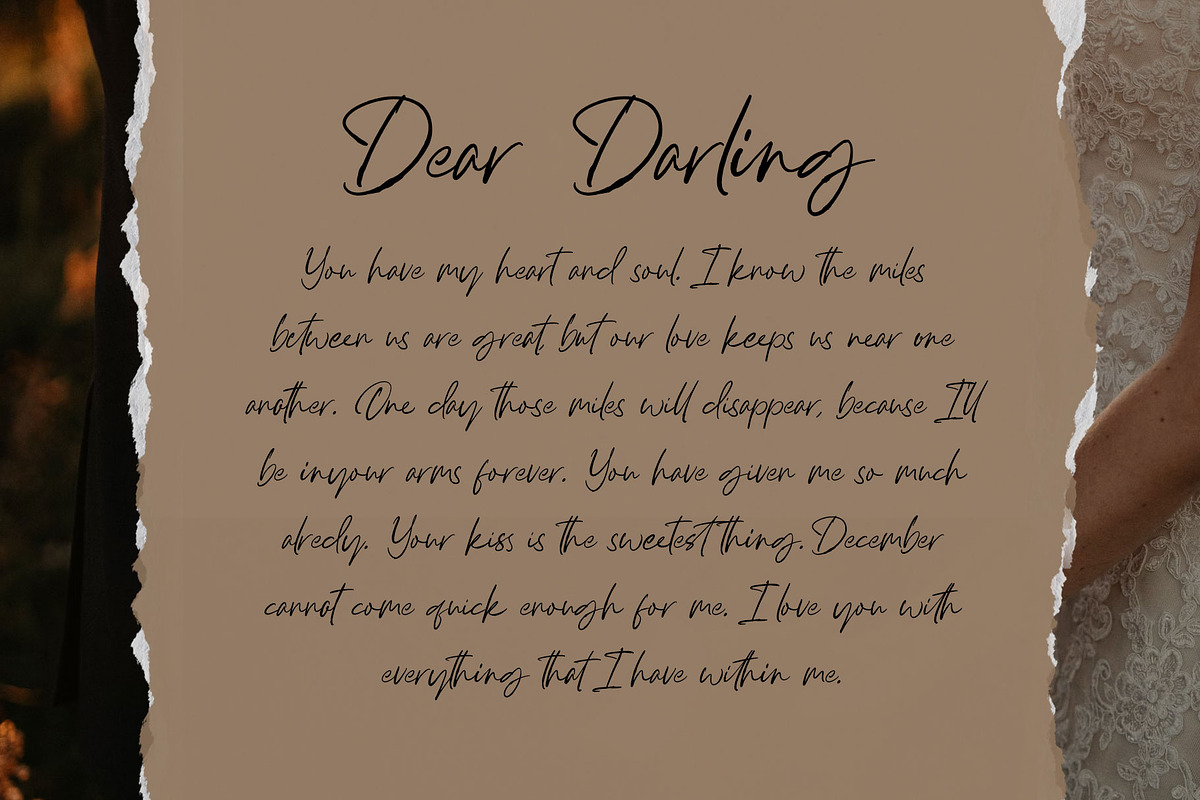 Dear Darling
You have my heart and soul. I know the miles
between us are great, but our love keeps us near one
another. One day those miles will disappear, because I'll
be inyour arms forever. You have given me so much
alredy. Your kiss is the sweetest thing. December
cannot come quick enough for me. I love you with
everything that I have within me.